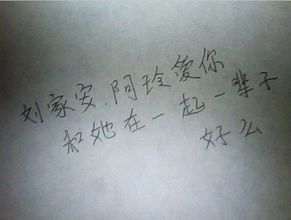 刘家安.阿玲爱你
和她在一起一辈子
好么